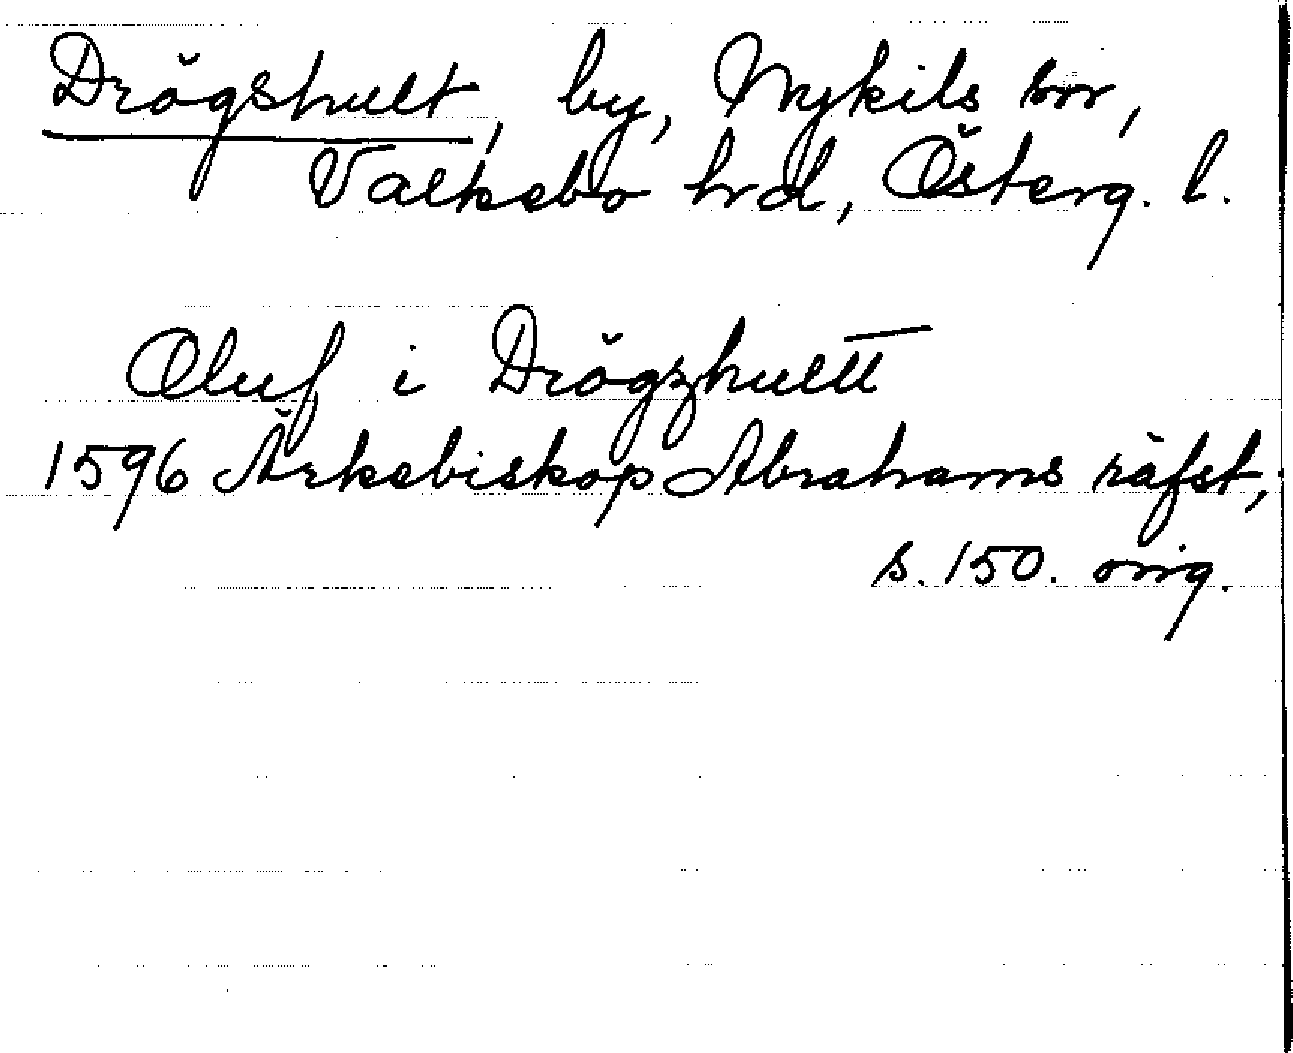 Drögshult, by, Nykils snr,
Valkebo hrd, Österg. l.
Oluf i Drögzhultt
1596 Ärkebiskop Abrahams räfst,
s. 150. orig.